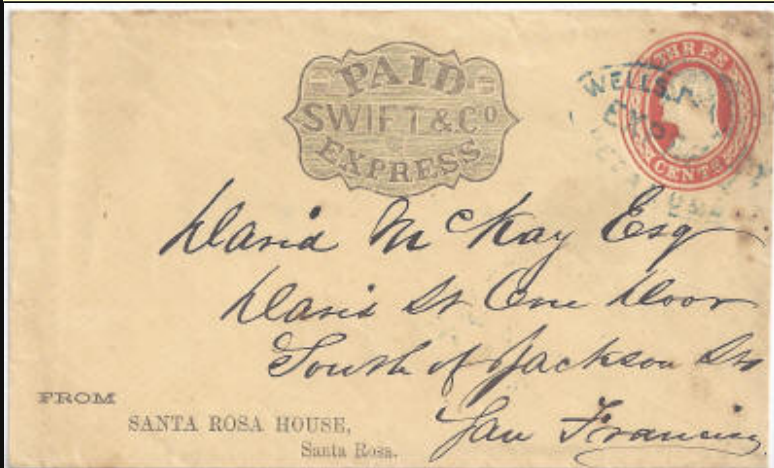 PAID
SWIFT & Co
EXPRESS
THREE
CENTS
WELLS,
EXP
David McKay Esq
Davis St One Door
South of Jackson St
San Francisco
FROM
SANTA ROSA HOUSE,
Santa Rosa.